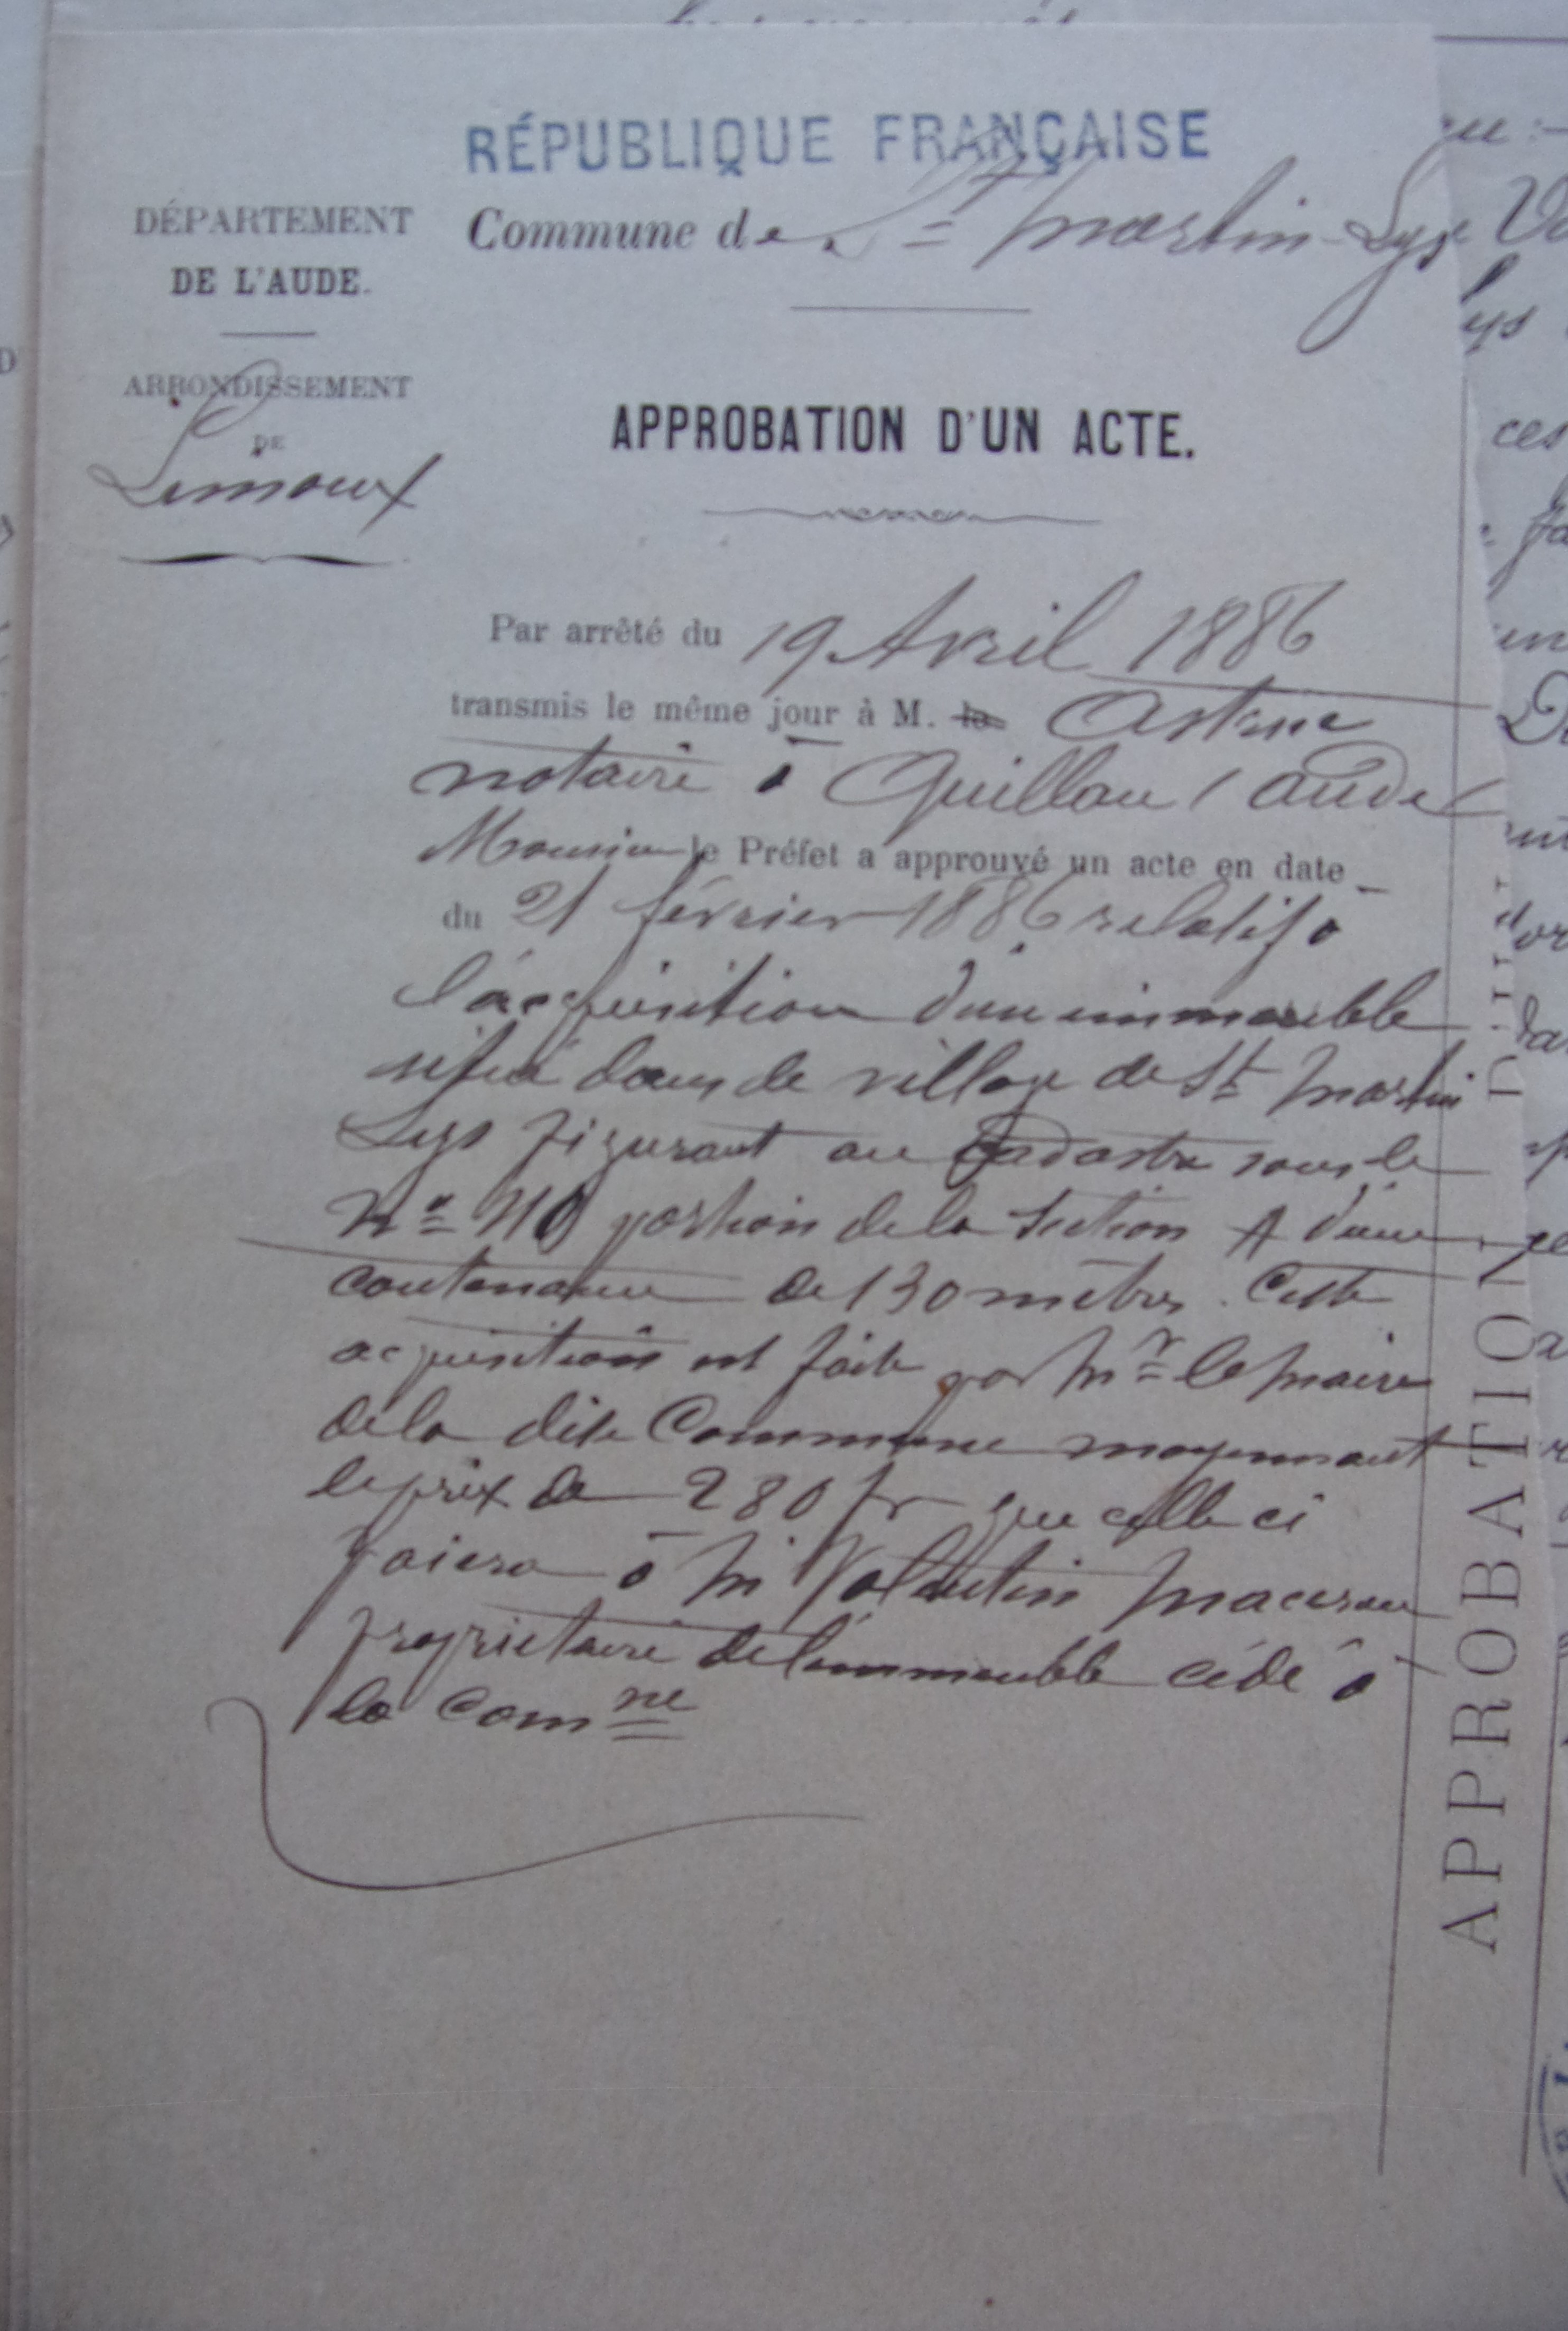 RÉPUBLIQUE FRANÇAISE
DÉPARTEMENT
DE L'AUDE.
Commune de St Martin-Lys
ARRONDISSEMENT
DE
Limoux
APPROBATION D'UN ACTE.
Par arrêté du 19 Avril 1886
transmis le même jour à M. le Astruc
notaire à Quillan (Aude)
Monsieur le Préfet a approuvé un acte en date
du 21 février 1886 relatif à
l'acquisition d'un immeuble
situé dans le village de St Martin
Lys figurant au Cadastre sous le
No portion de la Section A d'une
contenance de 130 mètres. Cette
acquisition est faite par Mr le Maire
de la dite Commune moyennant
le prix de 280 fr que celle ci
paiera à M Valentin
propriétaire de l'immeuble cédé à
la Comne
APPROBATION